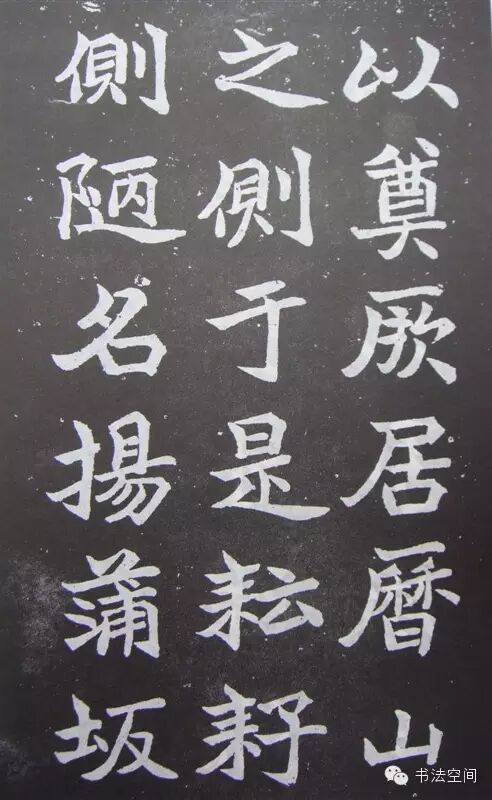 以奠厥居曆山
之側于是耘耔
側陋名揚蒲坂
书法空间